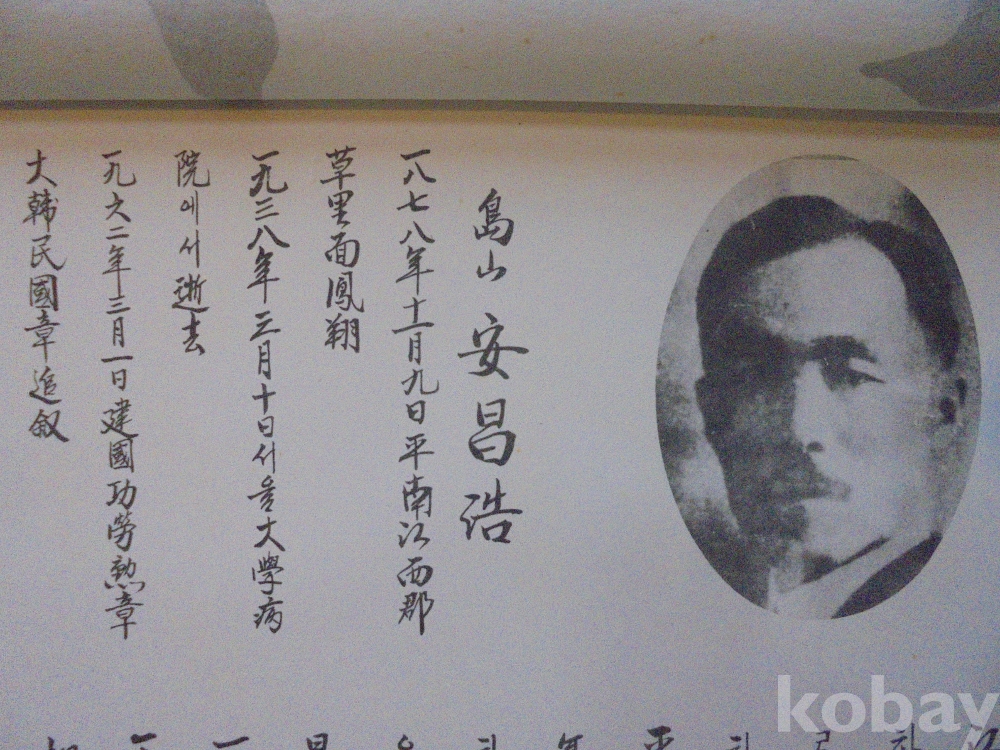 島山 安昌浩
一八七八年十一月九日平南江西郡
草里面鳳翔
一九三八年三月十日서울大學病
院에서逝去
一九六二年三月一日建國功勞勲章
大韓民國章追叙
kobay